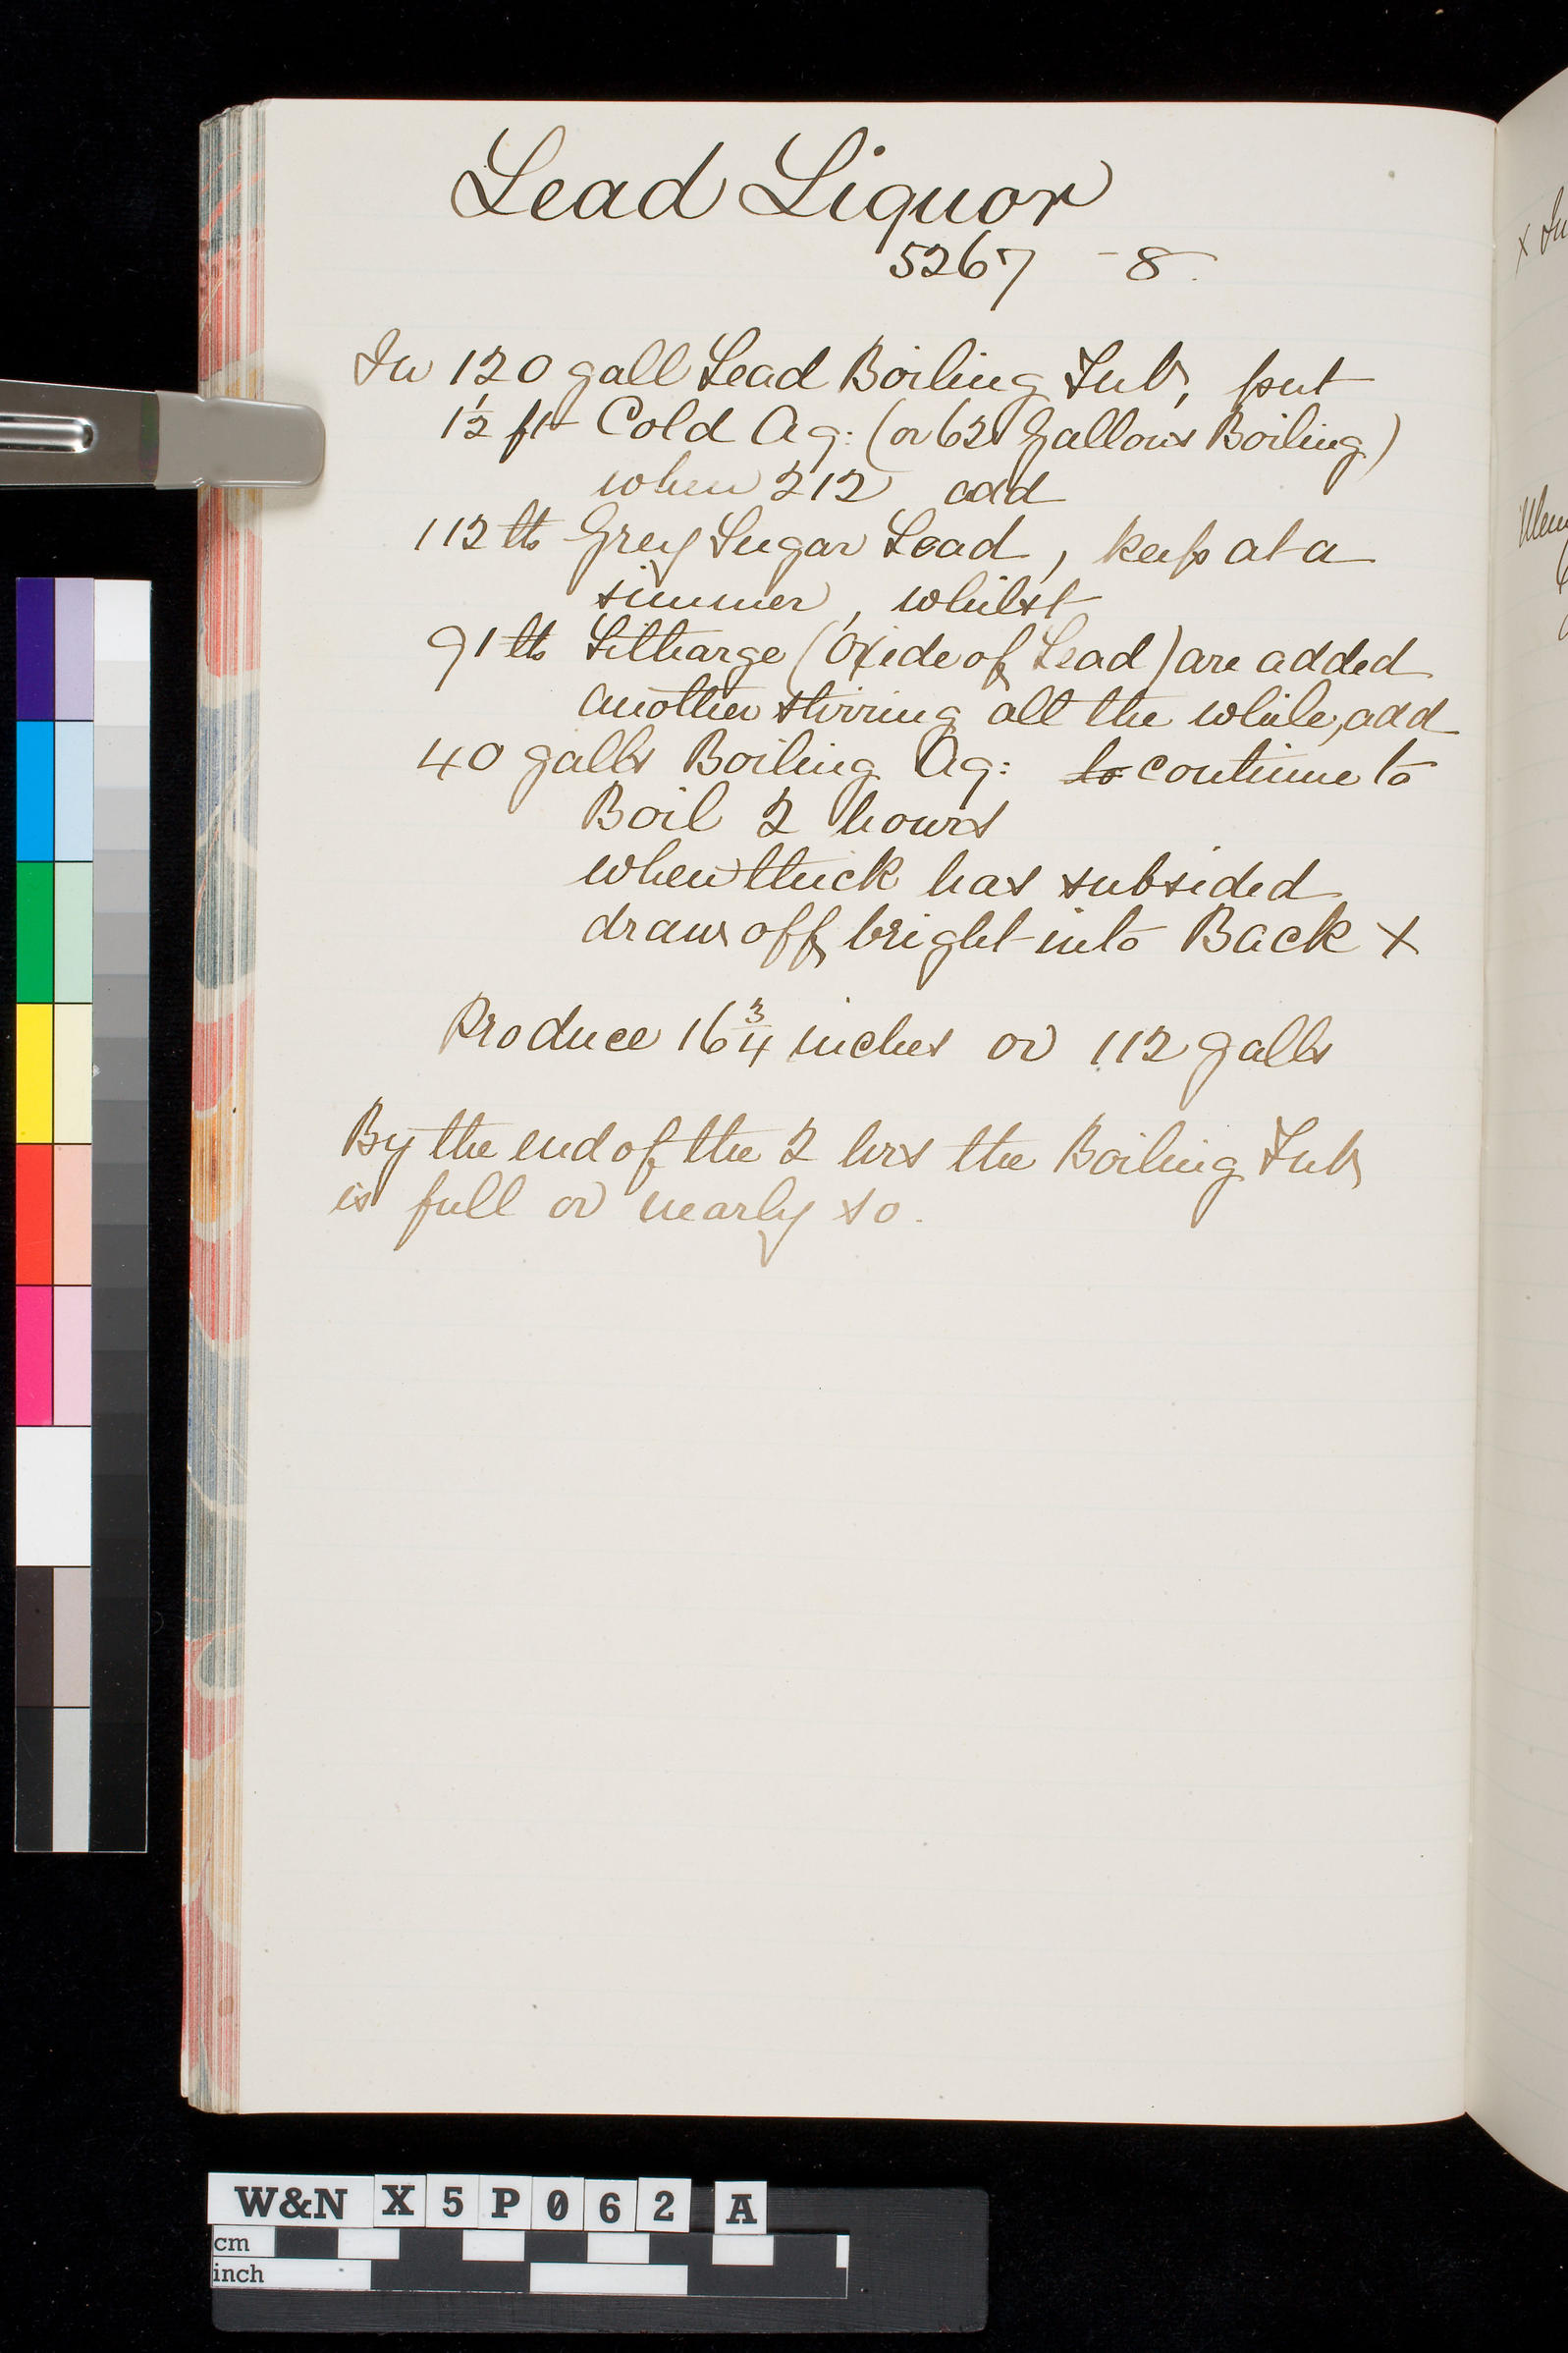 Lead Liquor
5267 - 8.
In 120 gall Lead Boiling Tub, put
1½ ft Cold Aq: (or 62 Gallons Boiling)
when 212 add
112 lb Grey Sugar Lead, keep at a
simmer, whilst
91 lb Litharge (Oxide of Lead) are added
another stirring all the while, add
40 galls Boiling Aq: to continue to
Boil 2 hours
when thick has subsided
draw off bright into Back x
Produce 16 3/4 inches or 112 galls
By the end of the 2 hrs the Boiling Tub
is full or nearly so.
x
W&N X5P062 A
cm
inch